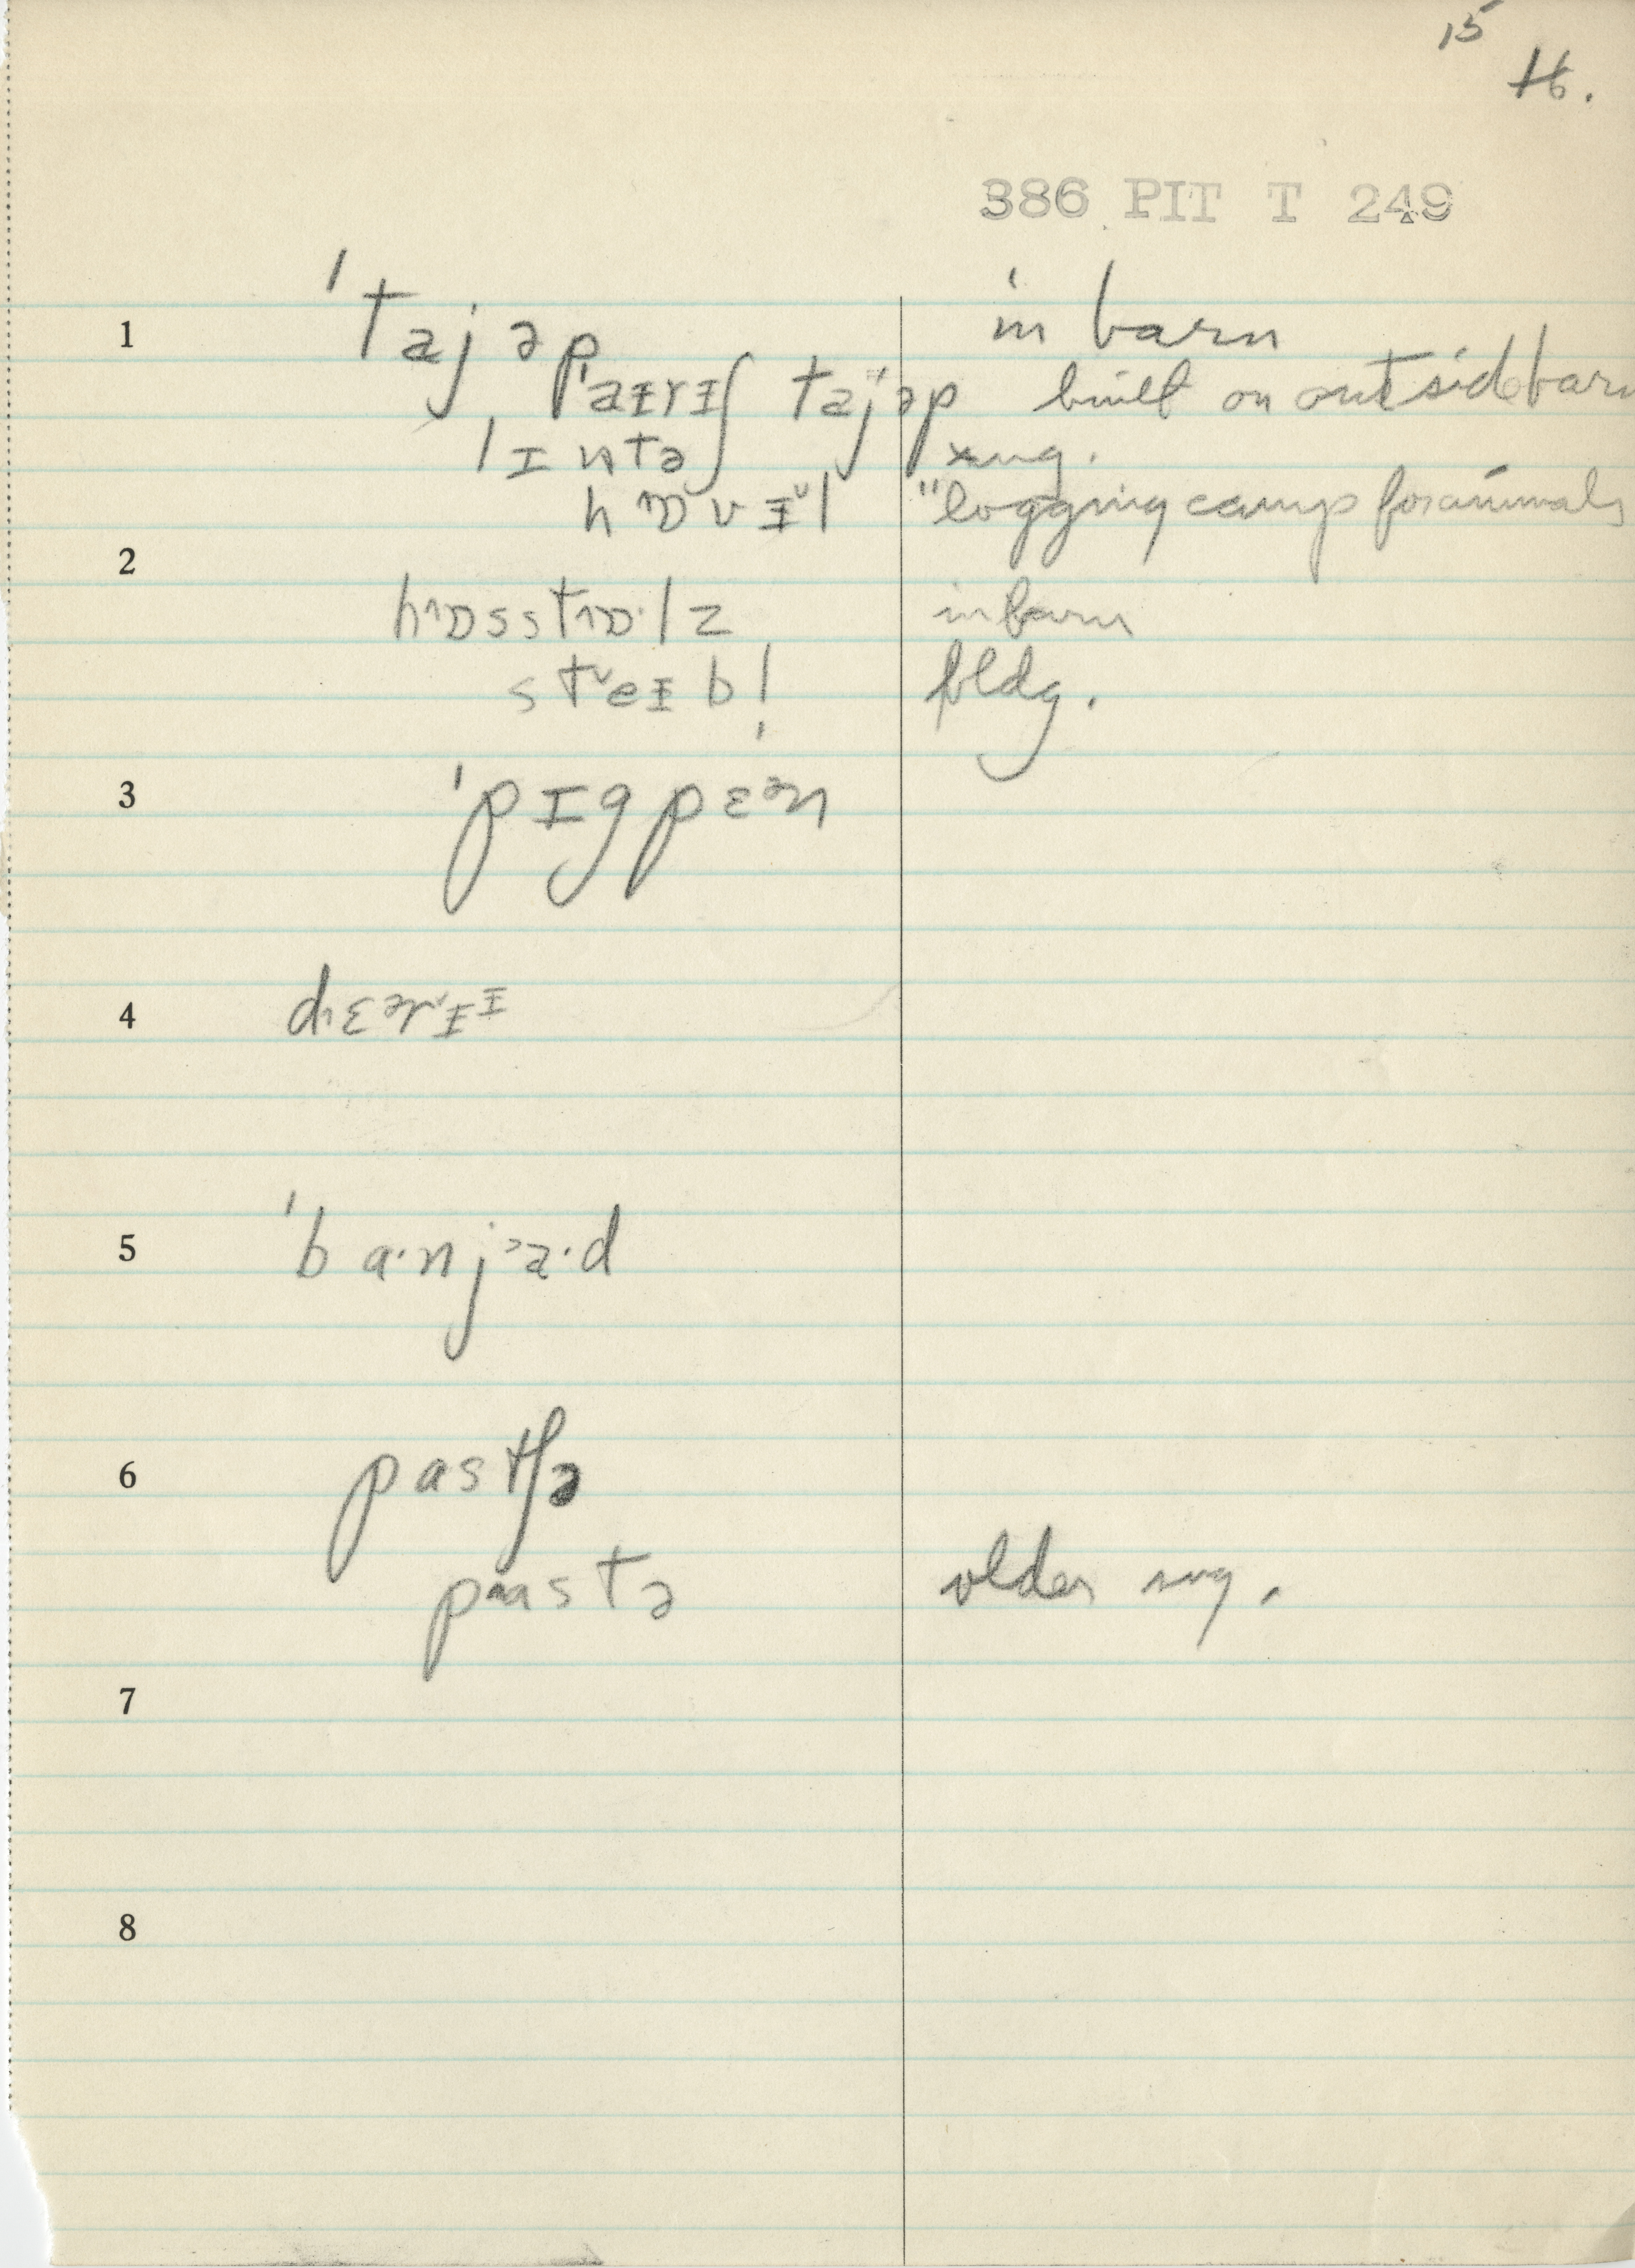 15
16.
386 PIT T 249
1 ˈtajəp in barn
ˈpaɪrɪʃ tajəp built on outside barn
lɪntə sug.
hɒvɪˇl "logging camp for animals
2 hɒsstɒ·lz in barn
stˇeɪbl̩ bldg.
3 ˈpɪgpɛᵊn
4 dɛᵊrˇɪɪ
5 ˈba·njᵊa·d
6 pastʃə
pastə older sug.
7
8